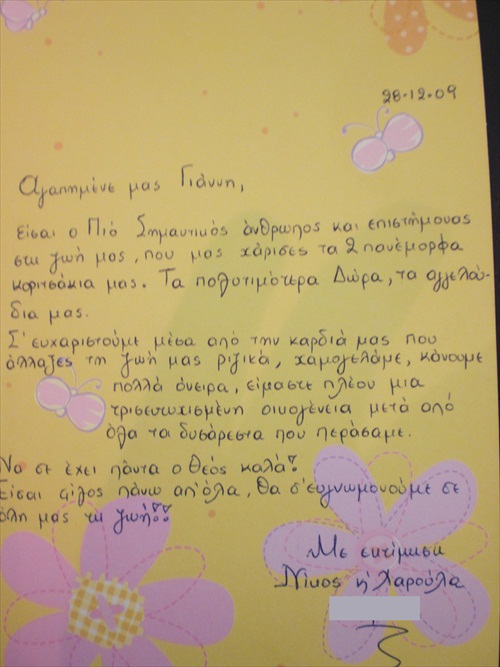 28-12-09
Αγαπημένε μας Γιάννη,
Είσαι ο Πιό Σημαντικός άνθρωπος και επιστήμονας
στη ζωή μας, που μας χάρισες τα 2 πανέμορφα
κοριτσάκια μας. Τα πολυτιμότερα Δώρα, τα αγγελού-
δια μας.
Σ' ευχαριστούμε μέσα από την καρδιά μας που
άλλαξες τη ζωή μας ριζικά, χαμογελάμε, κάνουμε
πολλά όνειρα, είμαστε πλέον μια
τρισευτυχισμένη οικογένεια μετά από
όλα τα δυσάρεστα που περάσαμε.
Να σε έχει πάντα ο Θεός καλά!
Είσαι φίλος πάνω απ' όλα, θα σ' ευγνωμονούμε σε
όλη μας τη ζωή!!
Με εκτίμηση
Νίκος κ' Χαρούλα